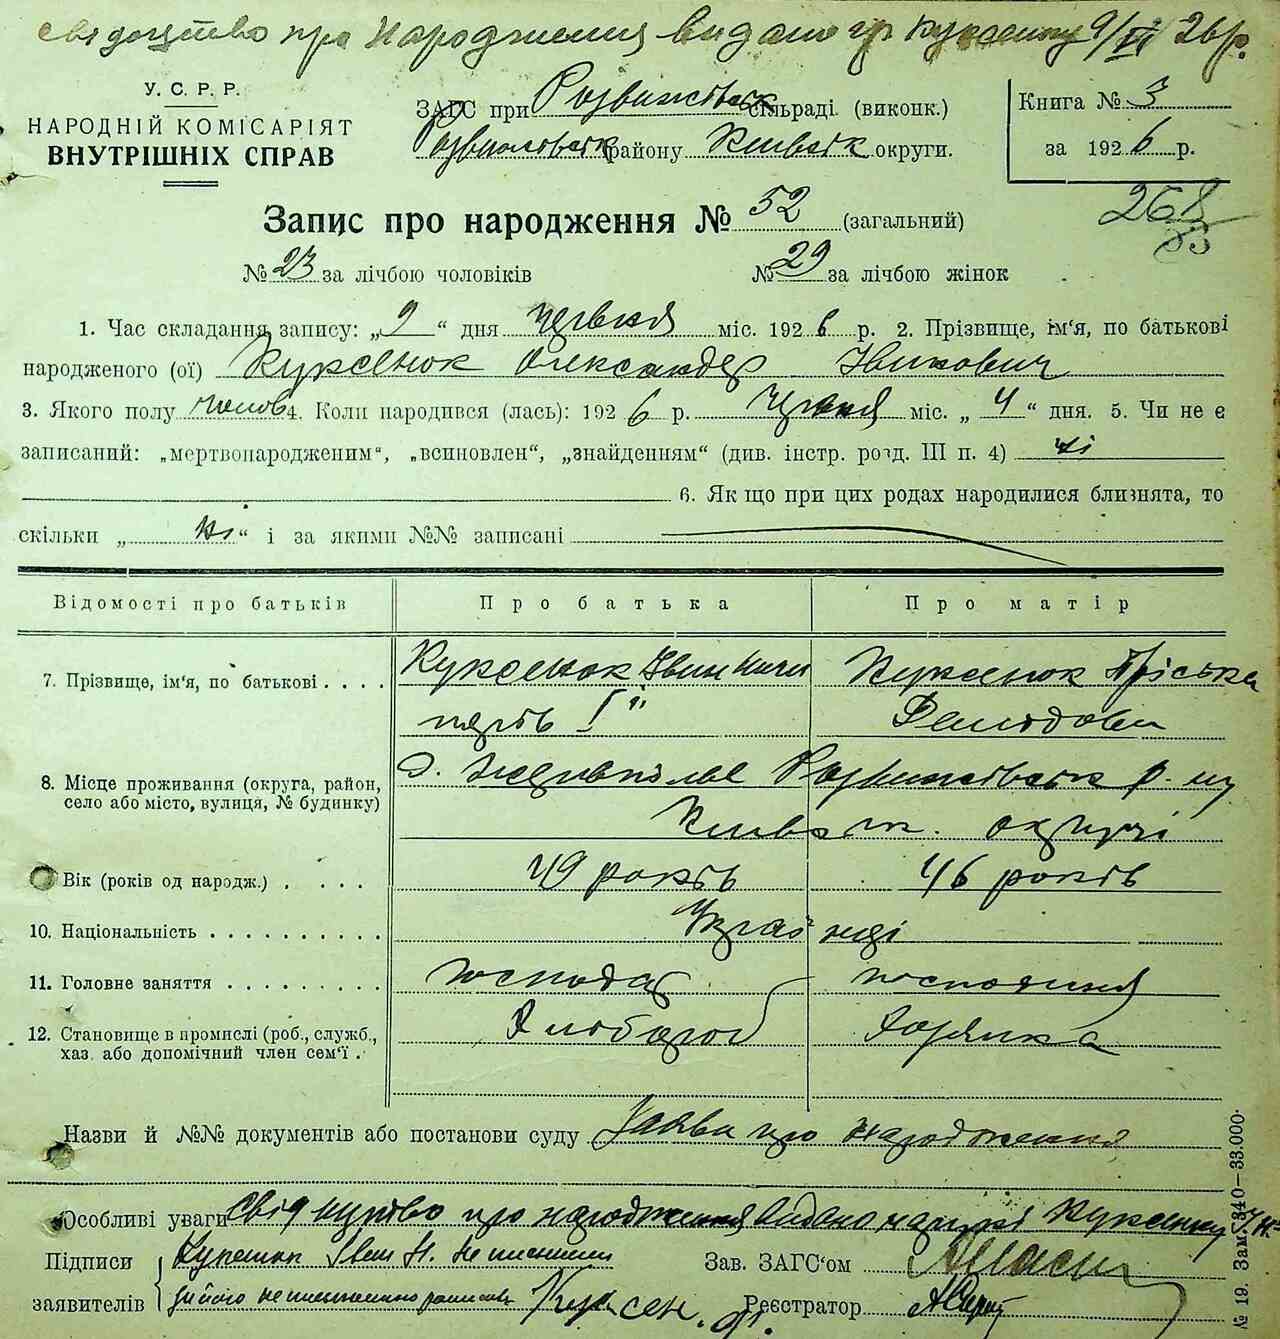 свідоцтво про народження видано гр Куксенку 9/VI 26 р.
У. С. Р. Р.
НАРОДНІЙ КОМІСАРІЯТ
ВНУТРІШНІХ СПРАВ
ЗАГС при Розважівськ сільраді (виконк.)
Розважівськ району Київськ округи.
Книга № 3
за 1926 р.
Запис про народження № 52 (загальний)
268
83
№ 23 за лічбою чоловіків № 29 за лічбою жінок
1. Час складання запису: „9“ дня червня міс. 1926 р. 2. Прізвище, ім'я, по батькові
народженого (ої) Куксенок Олександер Іванович
3. Якого полу чолов 4. Коли народився (лась): 1926 р. червня міс. „4“ дня. 5. Чи не є
записаний: „мертвонародженим“, „всиновлен“, „знайденням“ (див. інстр. розд. III п. 4) ні
6. Як що при цих родах народилися близнята, то
скільки „ ні “ і за якими №№ записані
Відомості про батьків Про батька Про матір
7. Прізвище, ім'я, по батькові . . . . Куксенок Іван Ничи Куксенок Пріська
порів І й Демидовна
8. Місце проживання (округа, район, село або місто, вулиця, № будинку) Розважівськ р-ну
Київськ. округи
Вік (років од народж.) . . . . . 49 років 46 років
10. Національність . . . . . . . . . . Українці
11. Головне заняття . . . . . . . . . господар господиня
12. Становище в промислі (роб., служб., хаз. або допомічний член сем'ї . Хлібороб
Назви й №№ документів або постанови суду Заява про народження
Особливі уваги свідоцтво про народження видано Куксенку І. Н.
Підписи заявителів Куксенок Іван Н. неписьмен
за його неписьменно росписавсь Куксен.
Зав. ЗАГС'ом
Реєстратор
№ 19. Зам. 340—33.000.